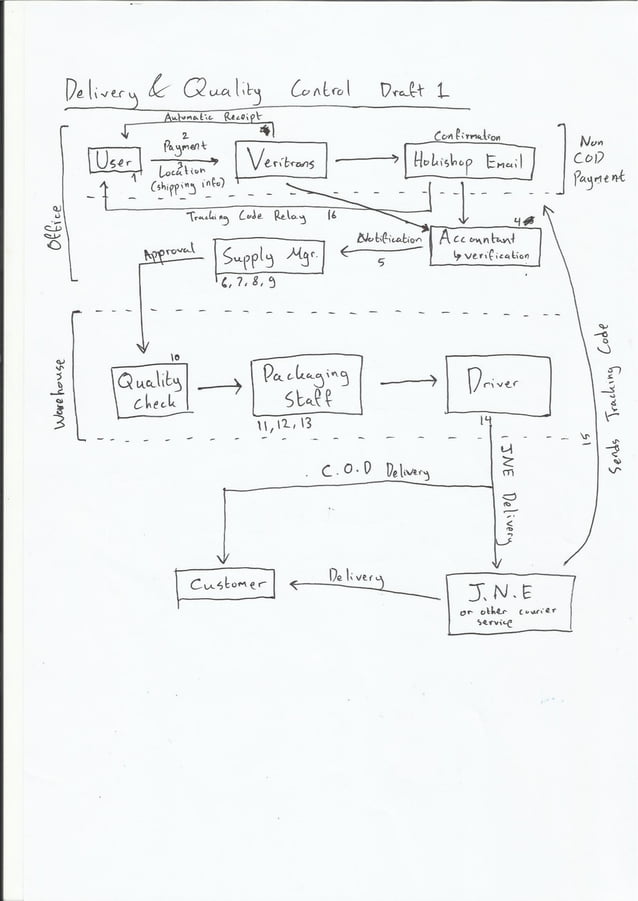 Delivery & Quality Control Draft 1
Automatic Receipt
2
Payment
3
Location
(shipping info)
User
1
Veritrans
Confirmation
Hokishop Email
Non
COD
Payment
Office
Tracking Code Relay 16
4
Accountant
↳ verification
Notification
5
Supply Mgr.
6, 7, 8, 9
Approval
Warehouse
10
Quality
Check
Packaging
Staff
11, 12, 13
Driver
14
15 Sends Tracking Code
C.O.D Delivery
JNE Delivery
Customer
Delivery
J.N.E
or other courier
service